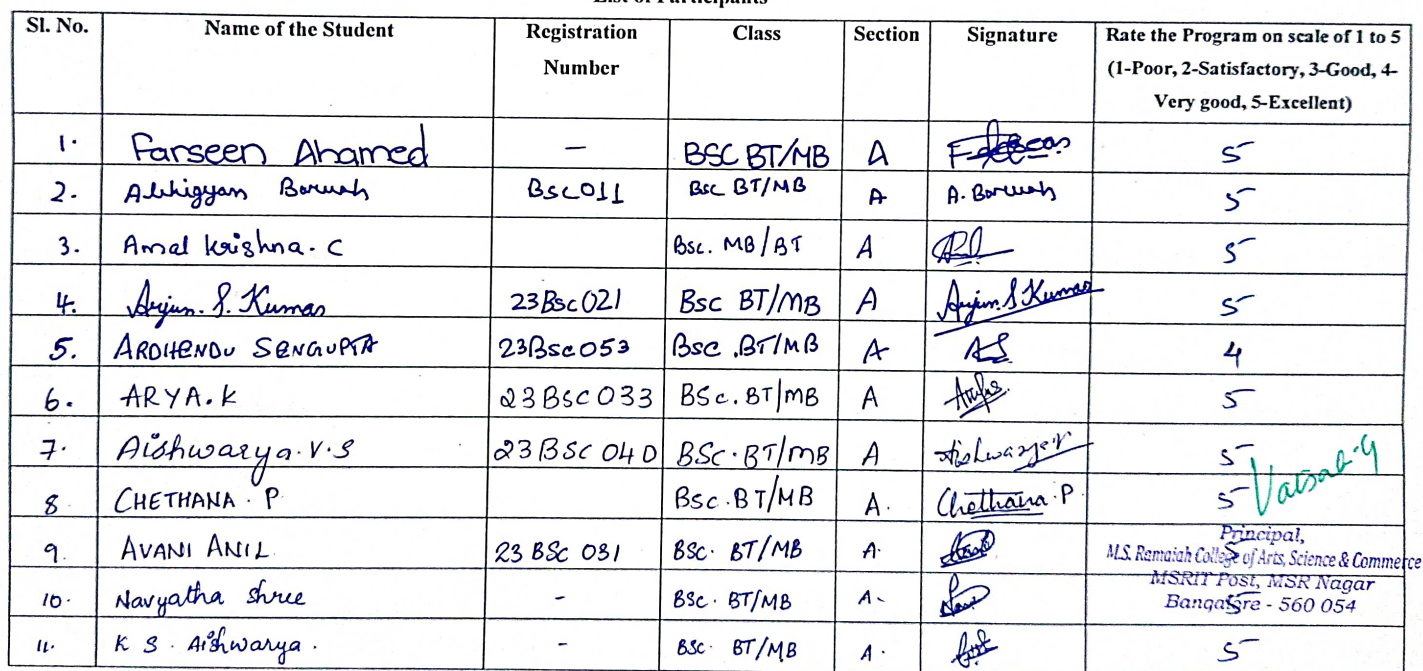 List of Participants
Sl. No. Name of the Student Registration Number Class Section Signature Rate the Program on scale of 1 to 5 (1-Poor, 2-Satisfactory, 3-Good, 4-Very good, 5-Excellent)
1. Farseen Ahamed - BSC BT/MB A 5
2. Abhigyan Boruah BSC011 BSC BT/MB A A. Boruah 5
3. Amal Krishna. C Bsc. MB/BT A 5
4. Arjun. S. Kumar 23BSC021 BSC BT/MB A Arjun. S. Kumar 5
5. ARDHENDU SENGUPTA 23Bsc053 BSC .BT/MB A AS 4
6. ARYA. K 23BSC033 BSc. BT/MB A 5
7. Aishwarya. V. S 23BSC040 BSC. BT/MB A 5
8 CHETHANA . P Bsc. BT/MB A. Chethana. P 5
9. AVANI ANIL 23 BSC 031 BSC. BT/MB A. 5
10. Navyatha Shree - BSC. BT/MB A. 5
11. K S. Aishwarya. - BSC. BT/MB A. 5
Principal,
M.S. Ramaiah College of Arts, Science & Commerce
MSRIT Post, MSR Nagar
Bangalore - 560 054